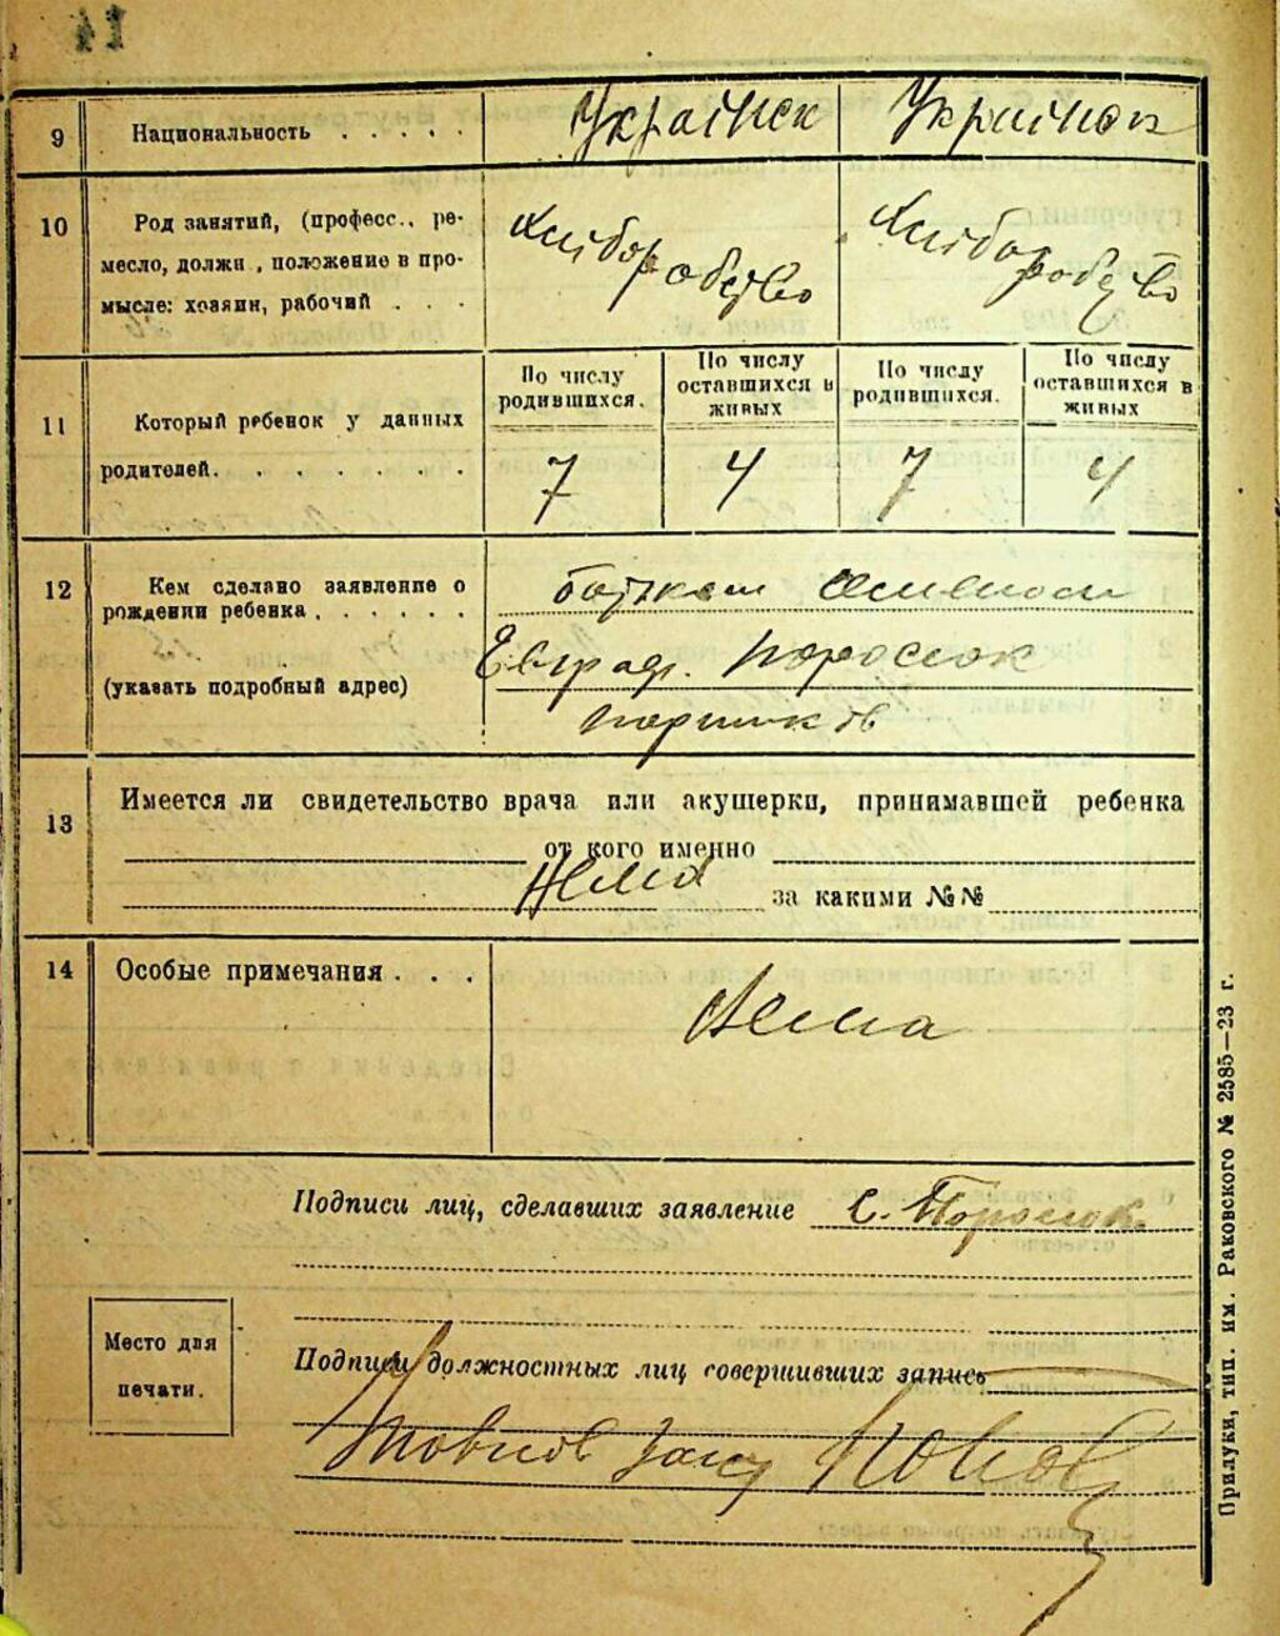 14
9 Национальность . . . . . Українек Українок
10 Род занятий, (професс., ре-
месло, должн , положение в про-
мысле: хозяин, рабочий . . .
Хлібо Хлібо
робство робство
11 Который ребенок у данных
родителей. . . . . . .
По числу родившихся. По числу оставшихся в живых По числу родившихся. По числу оставшихся в живых
7 4 7 4
12 Кем сделано заявление о
рождении ребенка . . . . . .
(указать подробный адрес)
батьком Семеном
Евград. Поросюк
13 Имеется ли свидетельство врача или акушерки, принимавшей ребенка
от кого именно
Нема за какими №№
14 Особые примечания . . .
Нема
Подписи лиц, сделавших заявление С. Поросюк.
Место для
печати.
Подписи должностных лиц совершивших запись
Прилуки, тип. им. Раковского № 2585—23 г.